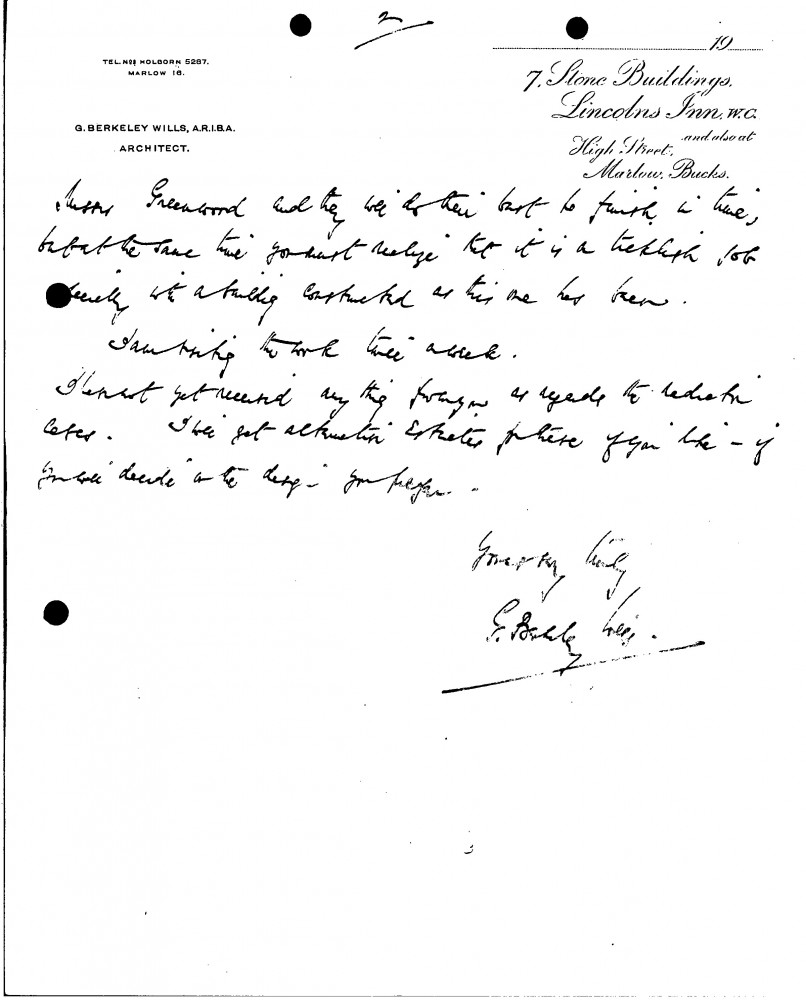 2
19
TEL. Nos HOLBORN 5287.
MARLOW 16.
7, Stone Buildings,
Lincolns Inn, W.C.
and also at
High Street,
Marlow, Bucks.
G. BERKELEY WILLS, A.R.I.B.A.
ARCHITECT.
Messrs Greenwood and they will do their best to finish in time,
but at the same time you must realize that it is a ticklish job
especially with a building constructed as this one has been.
I am visiting the work twice a week.
I have not yet received anything from you as regards the radiator
cases. I will get alternative estimates for these if you like – if
you will decide on the design you prefer.
Yours very truly
G. Berkeley Wills.